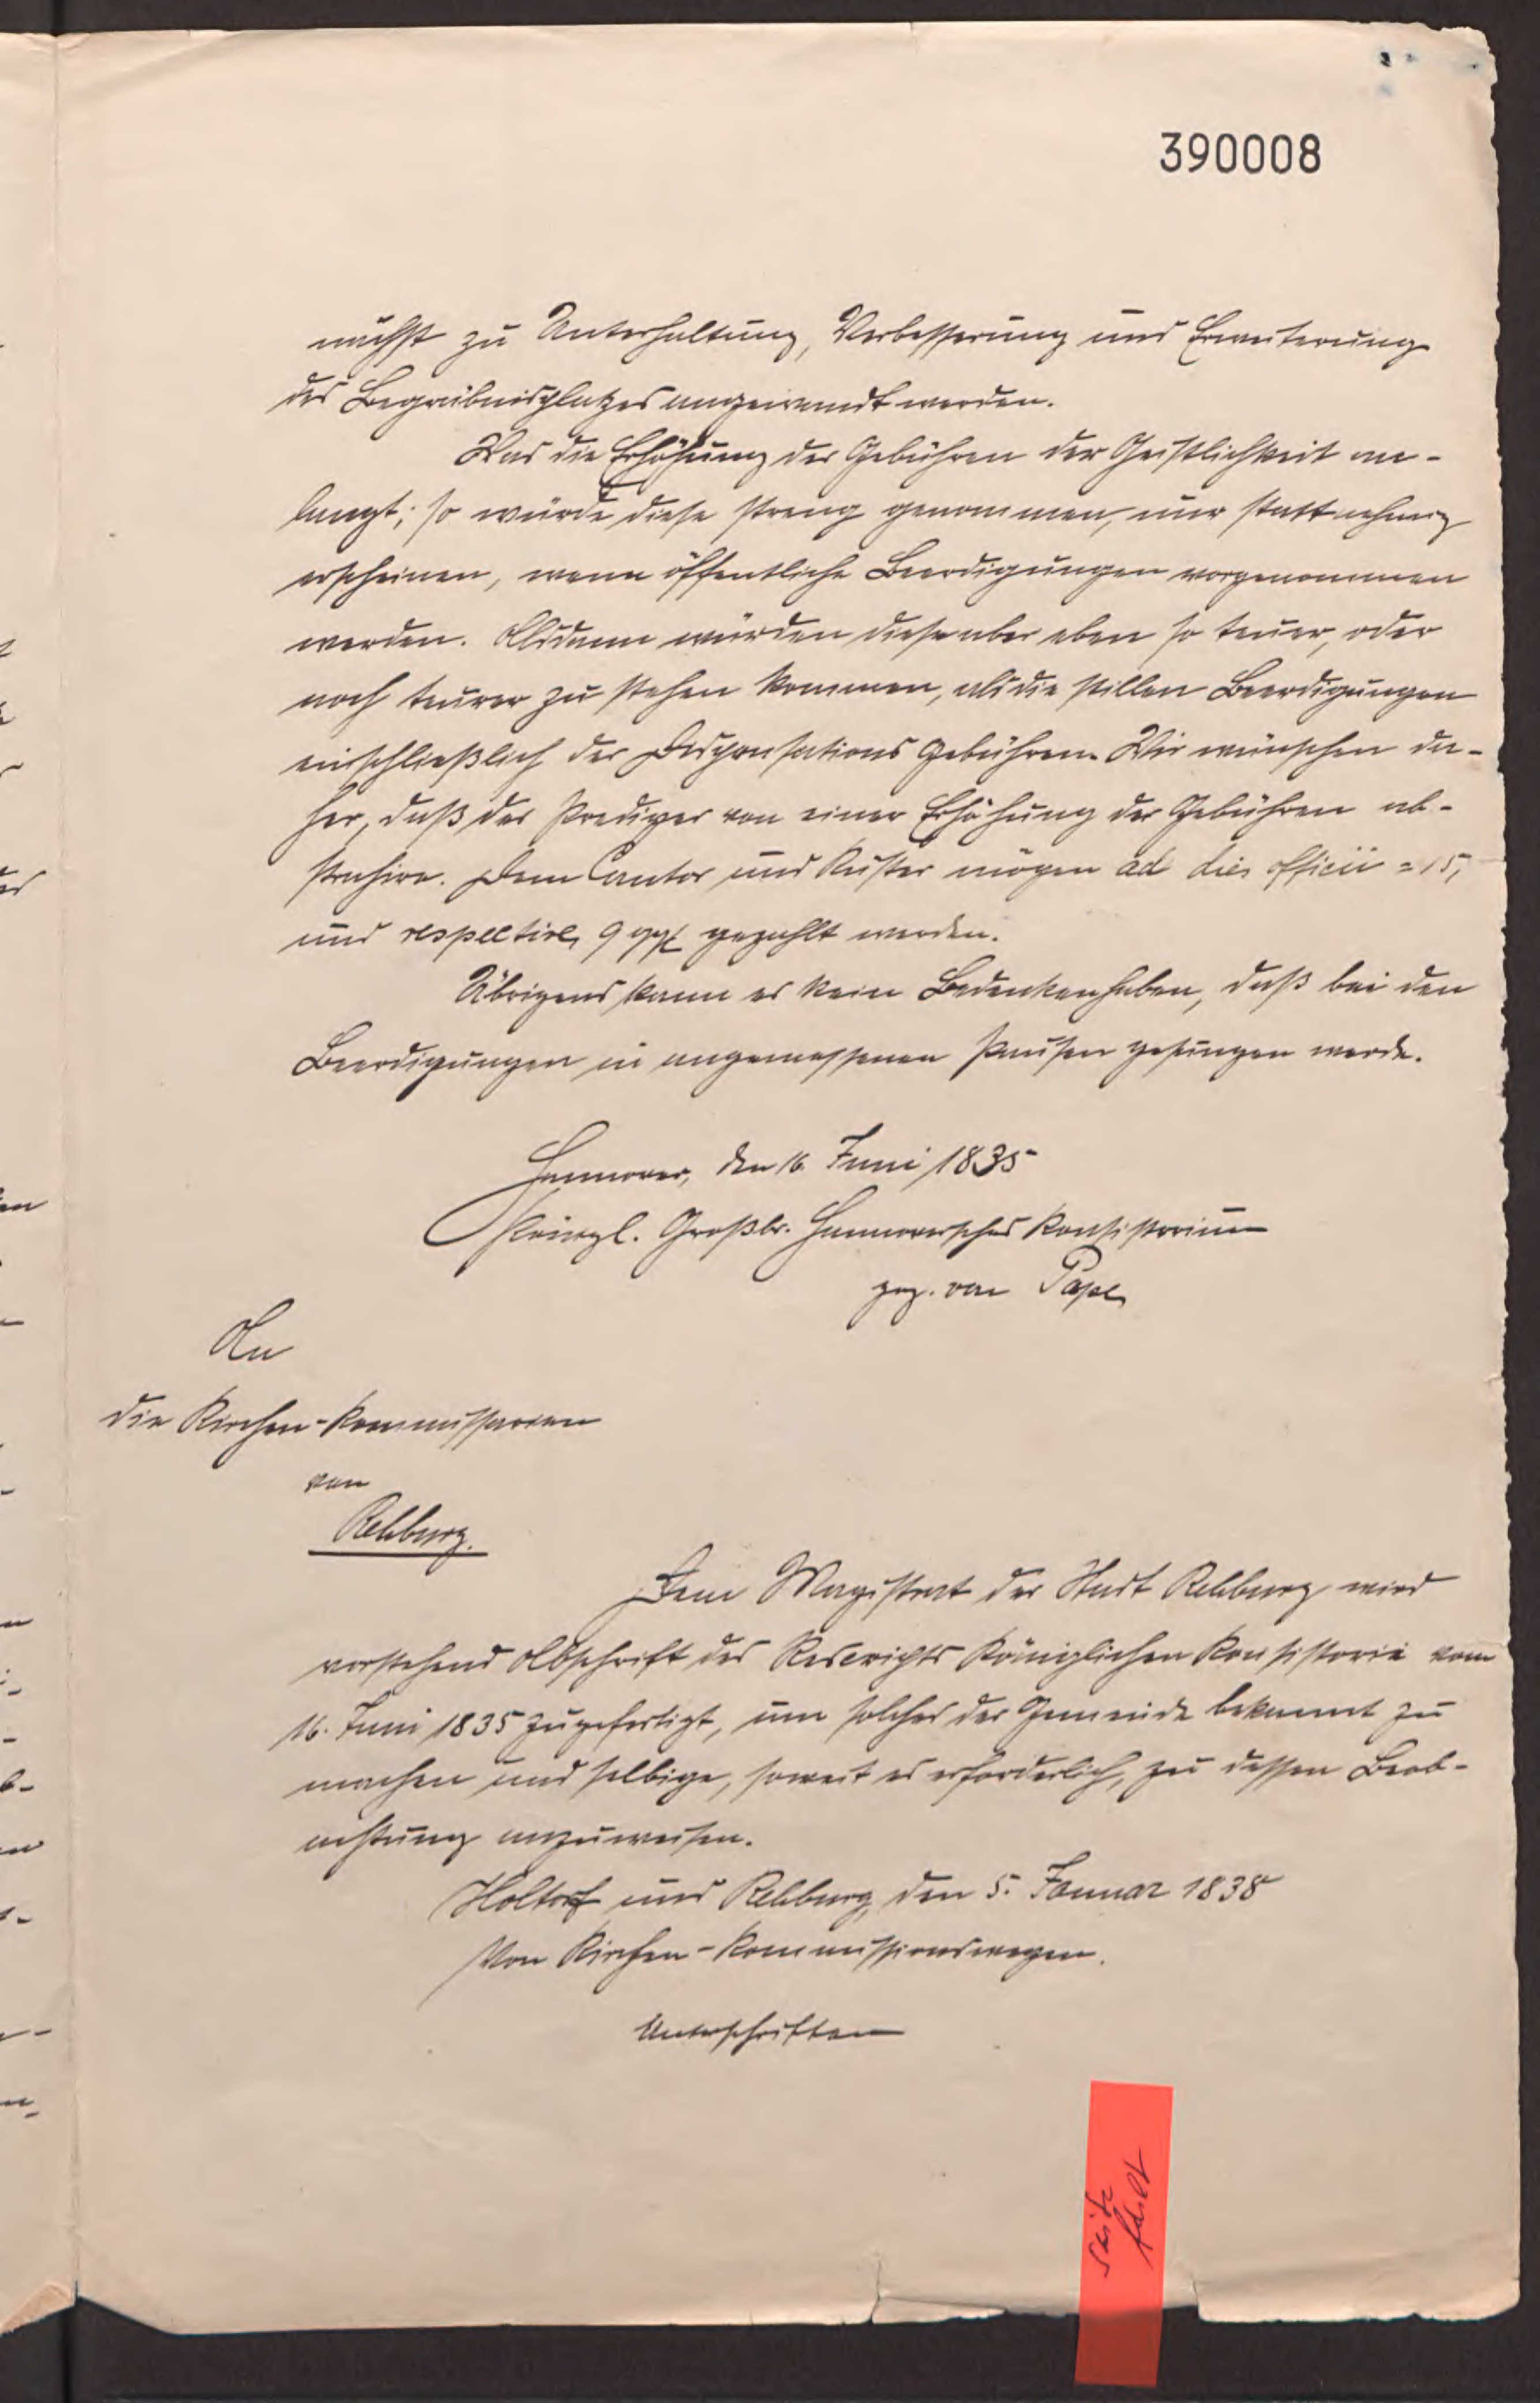 390008
nächst zu Unterhaltung, Verbesserung und Erweiterung
des Begräbnisplatzes angewandt werden.
Was die Erhöhung der Gebühren der Geistlichkeit an-
langt; so würde diese streng genommen, nur statt nehmig
erscheinen, wenn öffentliche Beerdigungen vorgenommen
werden. Alsdann würden diese aber eben so teuer, oder
noch teurer zu stehen kommen, als die stillen Beerdigungen
einschließlich der Dispensations Gebühren. Wir wünschen da-
her, daß der Prediger von einer Erhöhung der Gebühren ab-
strahire. Dem Cantor und Küster mögen ad dies officii = 15,
und respective 9 ggl gezahlt werden.
Übrigens kann es kein Bedenken haben, daß bei den
Beerdigungen in angemessenen Pausen gesungen werde.
Hannover, den 16. Juni 1835
Königl. Großbr. Hannoversches Konsistorium
gez. von Pape
An
die Kirchen-Kommissarien
von
Rehburg.
Dem Magistrat der Stadt Rehburg wird
vorstehend Abschrift des Rescripts Königlichen Konsistorii vom
16. Juni 1835 zugefertigt, um solches der Gemeinde bekannt zu
machen und selbige, soweit es erforderlich, zu dessen Beob-
achtung anzuweisen.
Holtorf und Rehburg, den 5. Januar 1838
Von Kirchen-Kommissionswegen.
Unterschriften
Seite
fehlt